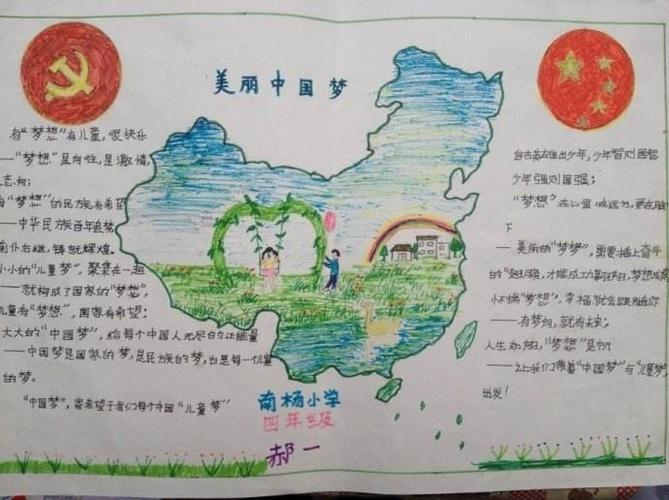 美丽中国梦
有“梦想”有儿童,很快乐
——“梦想”是向往,是激情,
志向;
有“梦想”的民族有希望
——中华民族百年追梦
前仆后继,铸就辉煌。
小小的“儿童梦”,聚集在一起
——就构成了国家的“梦想”,
儿童有“梦想”,国家有希望;
大大的“中国梦”,给每个中国人无尽的正能量
——中国梦是国家的梦,是民族的梦,也是每一个儿童
的梦。
“中国梦”,寄希望于我们每个中国“儿童梦”
自古英雄出少年,少年智则国智
少年强则国强;
“梦想”
下
——美丽的“梦”,需要插上奋斗
的“翅膀”,才能成功
“梦想”,幸福就会跟随你
——有梦想,就有未来;
人生
“梦想”
——让我们带着“中国梦”与“儿童梦”
出发!
南杨小学
四年级
郝一